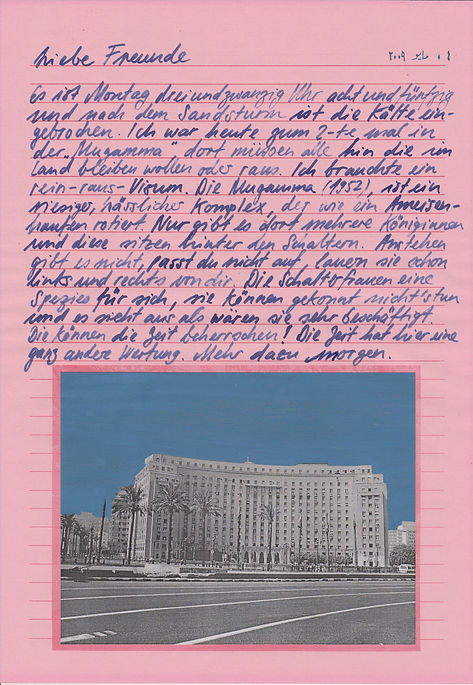 Liebe Freunde
٠٤ مايو ٢٠٠٩
Es ist Montag dreiundzwanzig Uhr acht und fünfzig
und nach dem Sandsturm ist die Kälte ein-
gebrochen. Ich war heute zum 2-te mal in
der „Mugamma" dort müssen alle hin die im
Land bleiben wollen oder raus. Ich brauchte ein
rein-raus-Visum. Die Mugamma (1952), ist ein
riesiger, hässlicher Komplex, der wie ein Ameisen-
haufen rotiert. Nur gibt es dort mehrere Königinnen
und diese sitzen hinter den Schaltern. Anstehen
gibt es nicht, passt du nicht auf, lauern sie schon
links und rechts von dir. Die Schaltefrauen eine
Spezies für sich, sie können gekonnt nichts tun
und es sieht aus als wären sie sehr beschäftigt.
Die können die Zeit beherrschen! Die Zeit hat hier eine
ganz andere Wertung. Mehr dazu morgen.